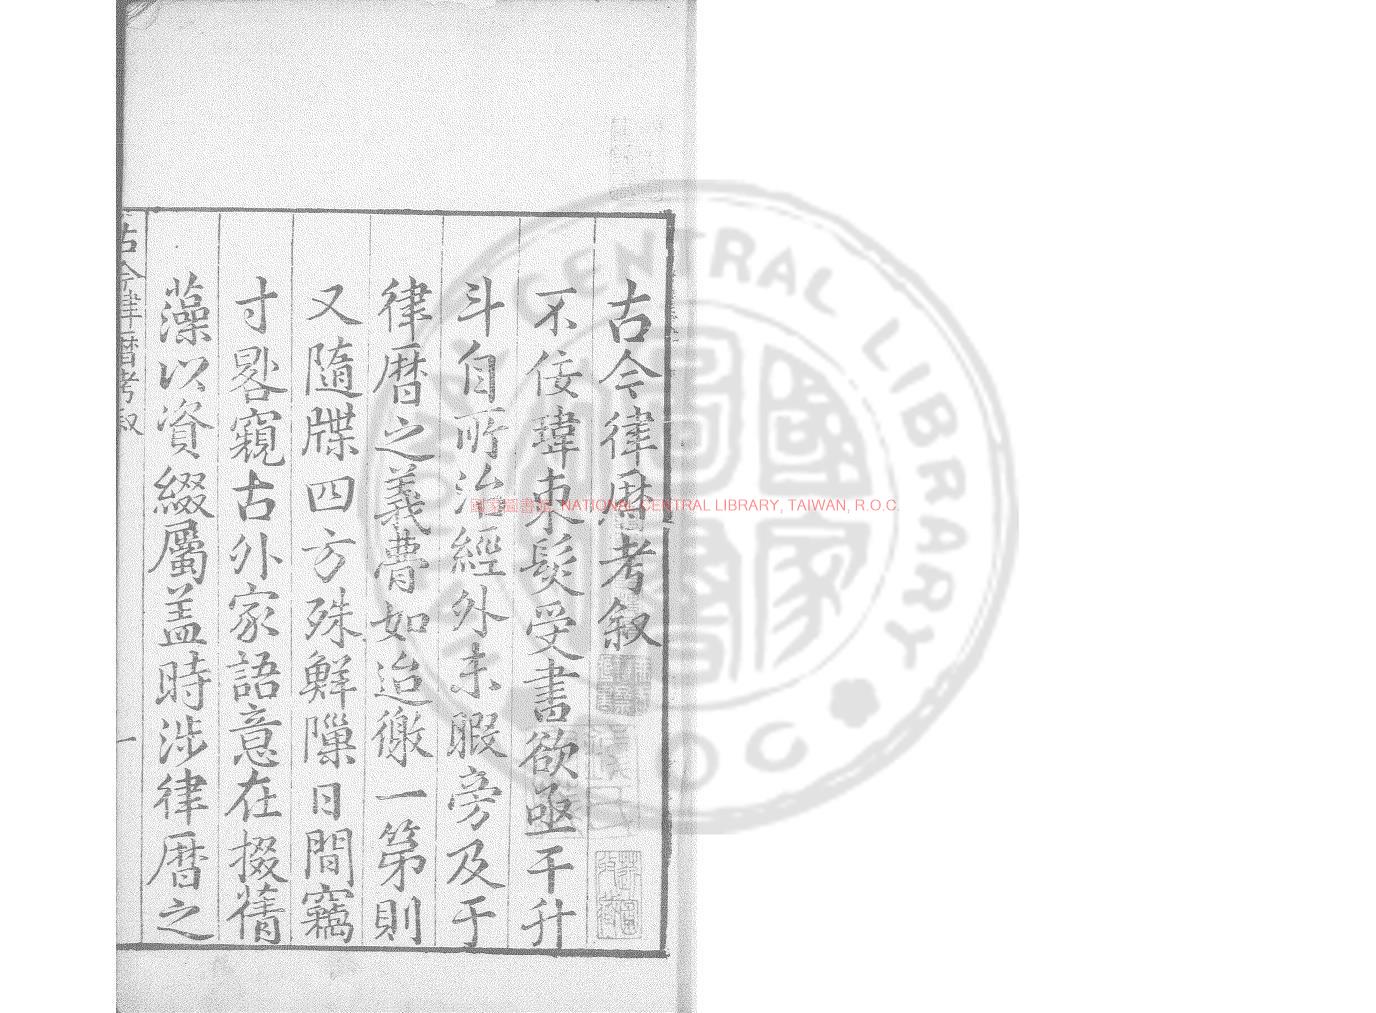 古今律曆考叙
不佞瑋束髮受書欲亟干升
斗自所治經外未暇旁及于
律曆之義瞢如迨徼一第則
又隨牒四方殊鮮隟日間竊
寸晷窺古外家語意在掇蒨
藻以資綴屬盖時涉律曆之
古今律曆考叙
一
國家圖書館, NATIONAL CENTRAL LIBRARY, TAIWAN, R.O.C.